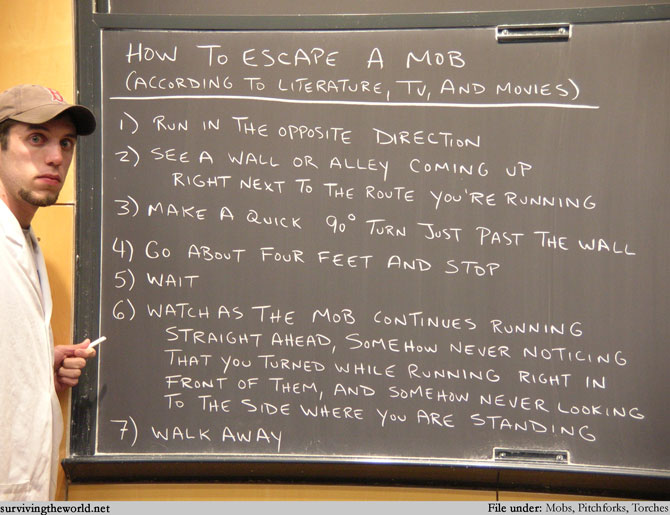 HOW TO ESCAPE A MOB
(ACCORDING TO LITERATURE, TV, AND MOVIES)
1) RUN IN THE OPPOSITE DIRECTION
2) SEE A WALL OR ALLEY COMING UP
RIGHT NEXT TO THE ROUTE YOU'RE RUNNING
3) MAKE A QUICK 90° TURN JUST PAST THE WALL
4) GO ABOUT FOUR FEET AND STOP
5) WAIT
6) WATCH AS THE MOB CONTINUES RUNNING
STRAIGHT AHEAD, SOMEHOW NEVER NOTICING
THAT YOU TURNED WHILE RUNNING RIGHT IN
FRONT OF THEM, AND SOMEHOW NEVER LOOKING
TO THE SIDE WHERE YOU ARE STANDING
7) WALK AWAY
survivingtheworld.net
File under: Mobs, Pitchforks, Torches